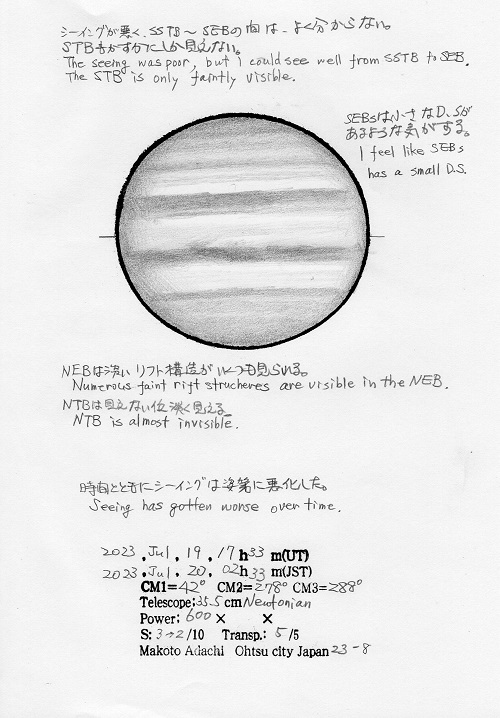 シーイングが悪く、SSTB～SEBの間は、よく分からない。
STBもかすかにしか見えない。
The seeing was poor, but i could see well from SSTB to SEB.
The STB is only faintly visible.
SEBsは小さなD.Sが
あるような気がする。
I feel like SEBs
has a small D.S.
NEBは淡いリフト構造がいくつも見られる。
Numerous faint rift structures are visible in the NEB.
NTBは見えない位淡く見える
NTB is almost invisible.
時間とともにシーイングは次第に悪化した。
Seeing has gotten worse over time.
2023, Jul, 19, 17h33m(UT)
2023, Jul, 20, 02h33m(JST)
CM1=42° CM2=278° CM3=288°
Telescope: 35.5cm Newtonian
Power: 600× ×
S: 3→2/10 Transp.: 5/5
Makoto Adachi Ohtsu city Japan 23-8